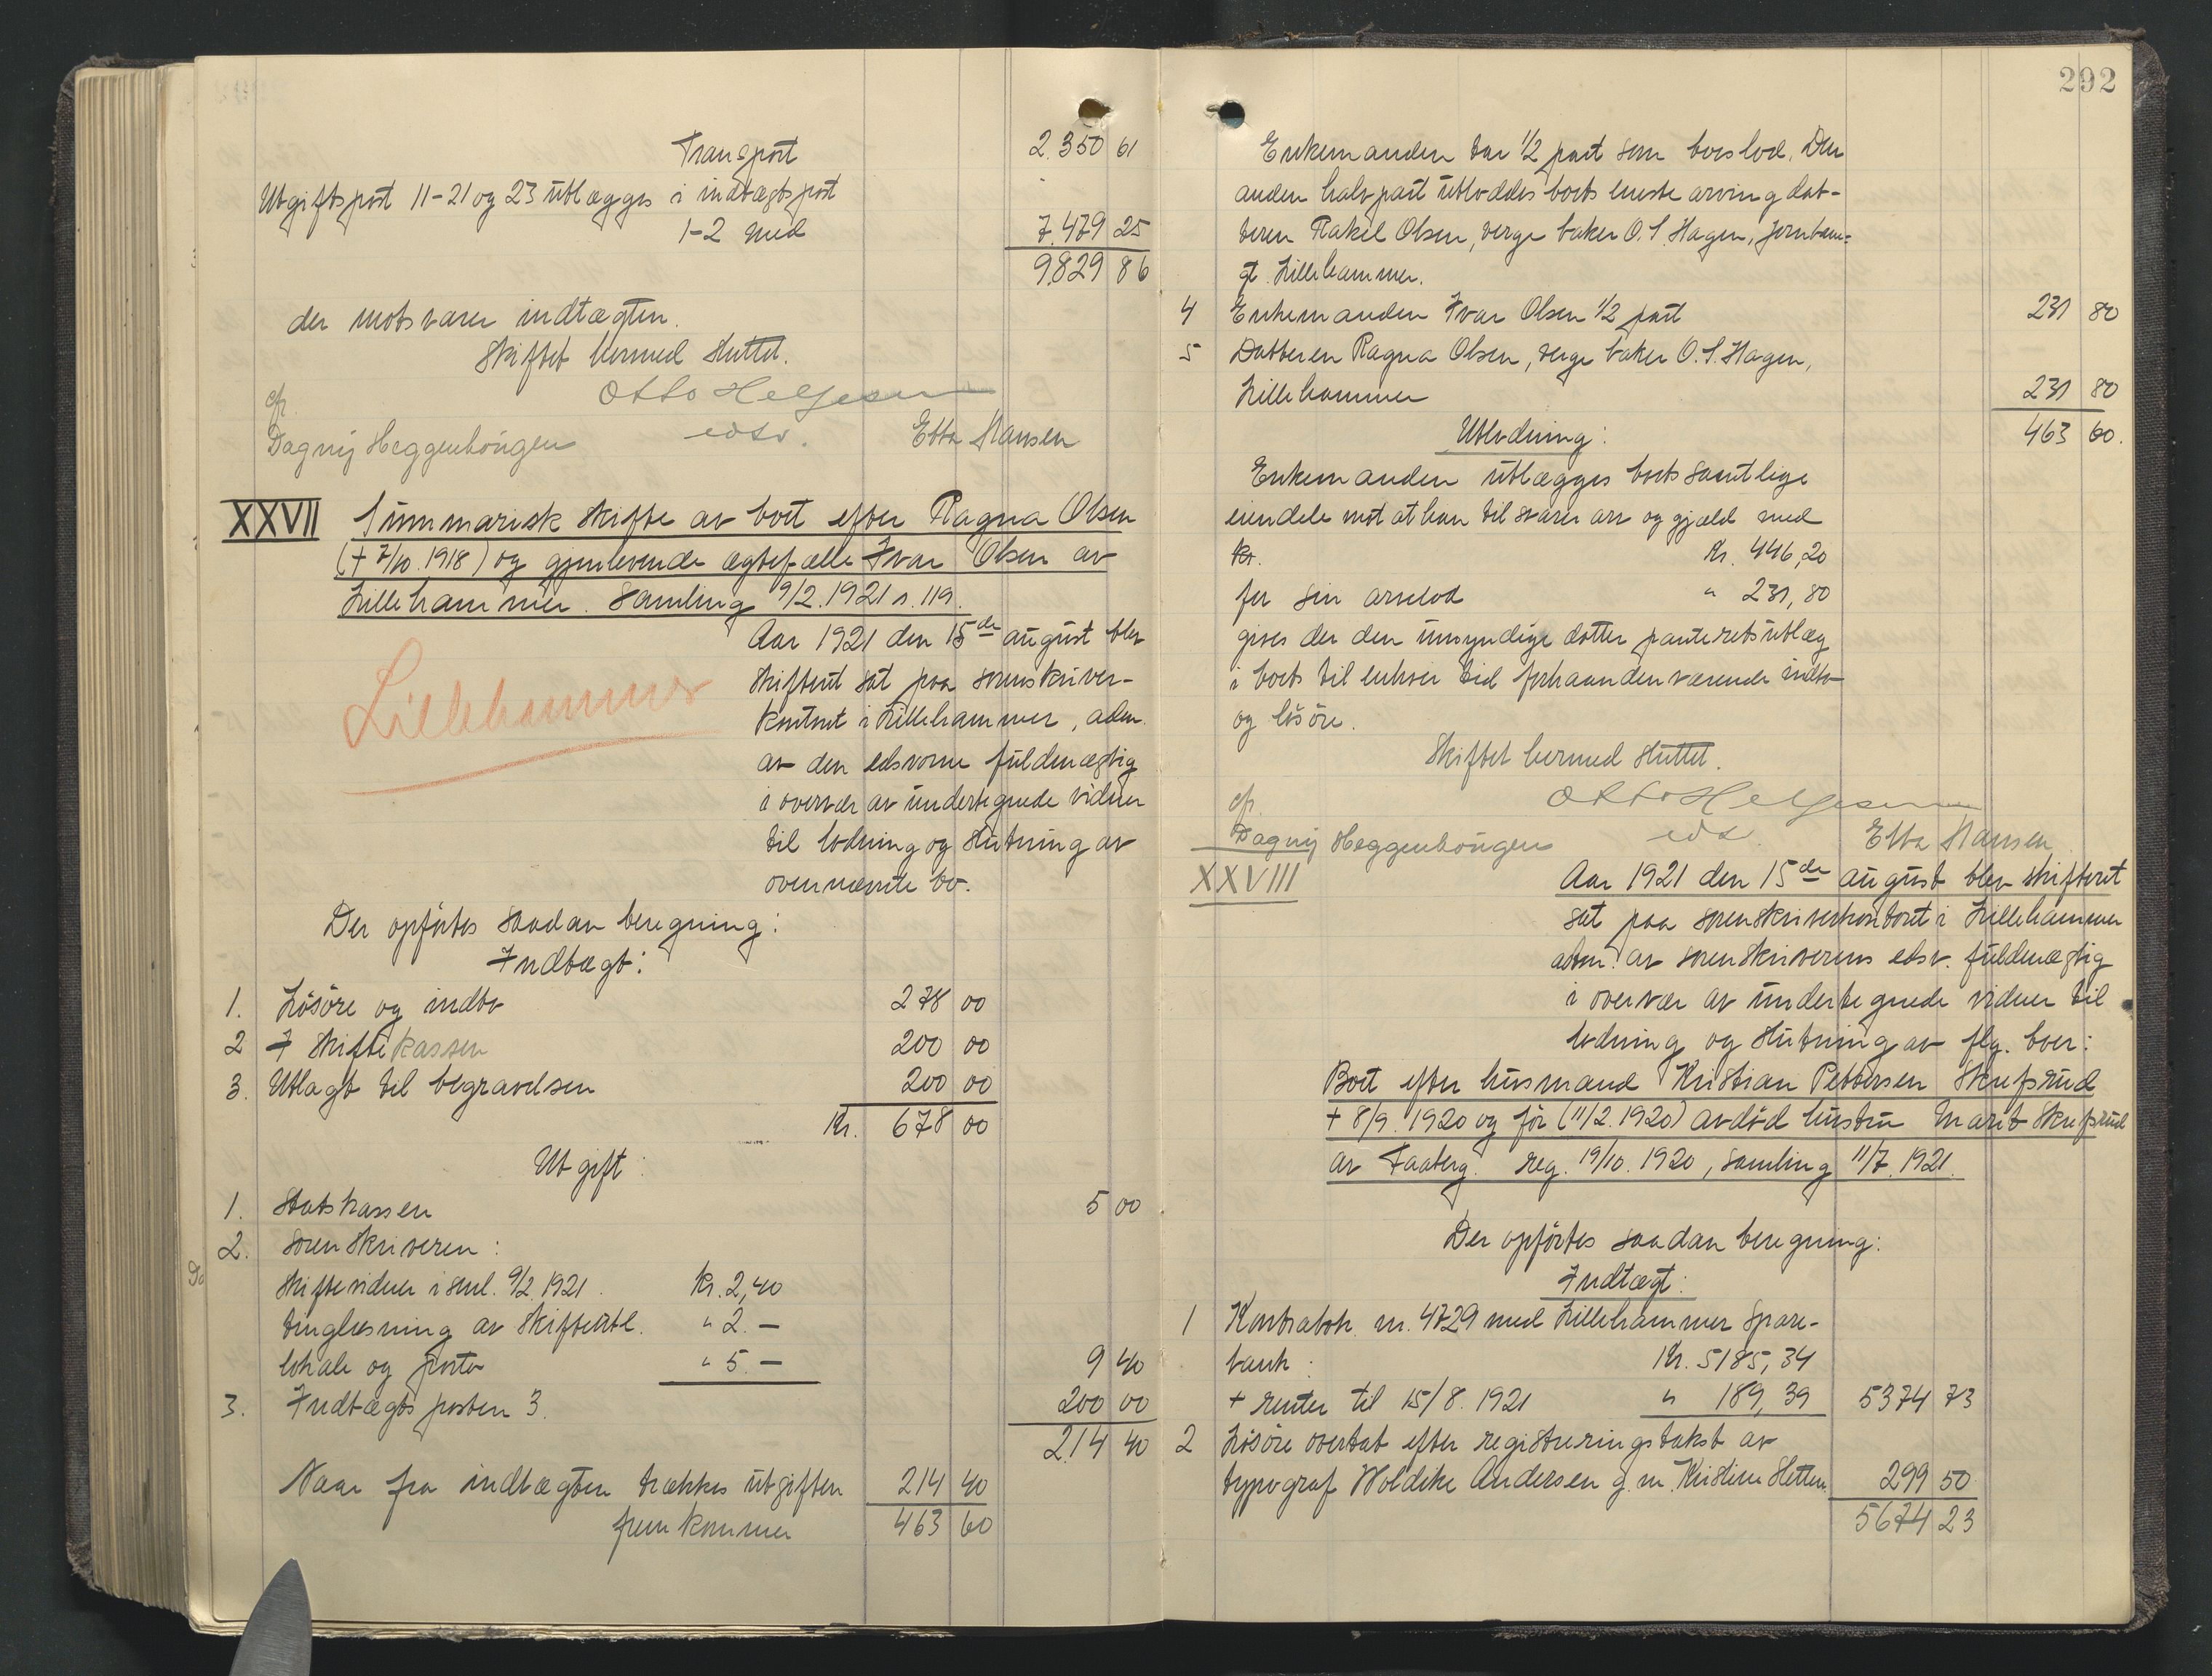 Transport 2.350 61
Utgiftspost 11-21 og 23 utlægges i indtægtspost
1-2 med 7.479 25
9829 86
der motsvarer indtægten.
Skiftet hermed sluttet.
Otto Helgesen
edsv.
cfr.
Dagny Heggenhougen Etta Hansen
XXVII Summarisk skifte av boet efter Ragna Olsen
(+ 7/10.1918) og gjenlevende ægtefælle Ivar Olsen av
Lillehammer. Samling 9/2.1921 s. 119.
Lillehammer
Aar 1921 den 15de august blev
skifteret sat paa sorenskriver-
kontoret i Lillehammer, adm.
av den edsvorne fuldmægtig
i overvær av undertegnede vidner
til lodning og slutning av
ovennævnte bo.
Der opførtes saadan beregning:
Indtægt:
1. Løsøre og indbo 278 00
2 I skiftekassen 200 00
3. Utlagt til begravelsen 200 00
Kr. 678 00
Utgift:
1. Statskassen 5 00
2. Sorenskriveren:
skiftevidner i saml. 9/2.1921. Kr. 2,40
tinglæsning av skifteutl. " 2.—
lokale og porto " 5.— 9 40
3. Indtægtsposten 3. 200 00
214 40
Naar fra indtægten trækkes utgiften 214 40
fremkommer 463 60
292
Enkemanden tar 1/2 part som boeslod. Den
anden halvpart utloddes boets eneste arving dat-
teren Rakel Olsen, verge baker O. S. Hagen, Jernbane-
gt. Lillehammer.
4 Enkemanden Ivar Olsen 1/2 part 231 80
5 Datteren Ragna Olsen, verge baker O. S. Hagen,
Lillehammer 231 80
463 60.
Utlodning:
Enkemanden utlægges boets samtlige
eiendele mot at han tilsvarer arv og gjæld med
kr. Kr. 446,20
for sin arvelod " 231,80
gives der den umyndige datter panteretsutlæg
i boets til enhver tid forhaandenværende indbo
og løsøre.
Skiftet hermed sluttet.
Otto Helgesen
eds.
cfr.
Dagny Heggenhougen Etta Hansen
XXVIII Aar 1921 den 15de august blev skifteret
sat paa sorenskriverkontoret i Lillehammer
adm. av sorenskriverens edsv. fuldmægtig
i overvær av undertegnede vidner til
lodning og slutning av flg. boer:
Boet efter husmand Kristian Pettersen Skrefsrud
+ 8/9.1920 og før (11/2.1920) avdød hustru Marit Skrefsrud
av Faaberg. reg. 19/10.1920, samling 11/7.1921.
Der opførtes saadan beregning:
Indtægt:
1 Kontrabok nr. 4729 med Lillehammer Spare-
bank: Kr. 5185,34
+ renter til 15/8.1921 " 189,39 5374 73
2 Løsøre overtat efter registreringstakst av
typograf Woldike Andersen g. m. Kristine Sletten. 299 50
5674 23